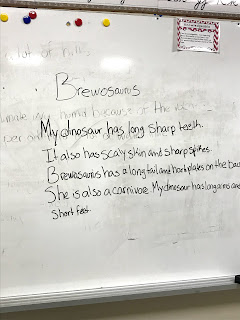 lot of
Brewosaurus
My dinosaur has long sharp teeth.
It also has scaly skin and sharp spikes.
Brewosaurus has a long tail and hard plates on the back
She is also a carnivore. My dinosaur has long arms and
short feet.